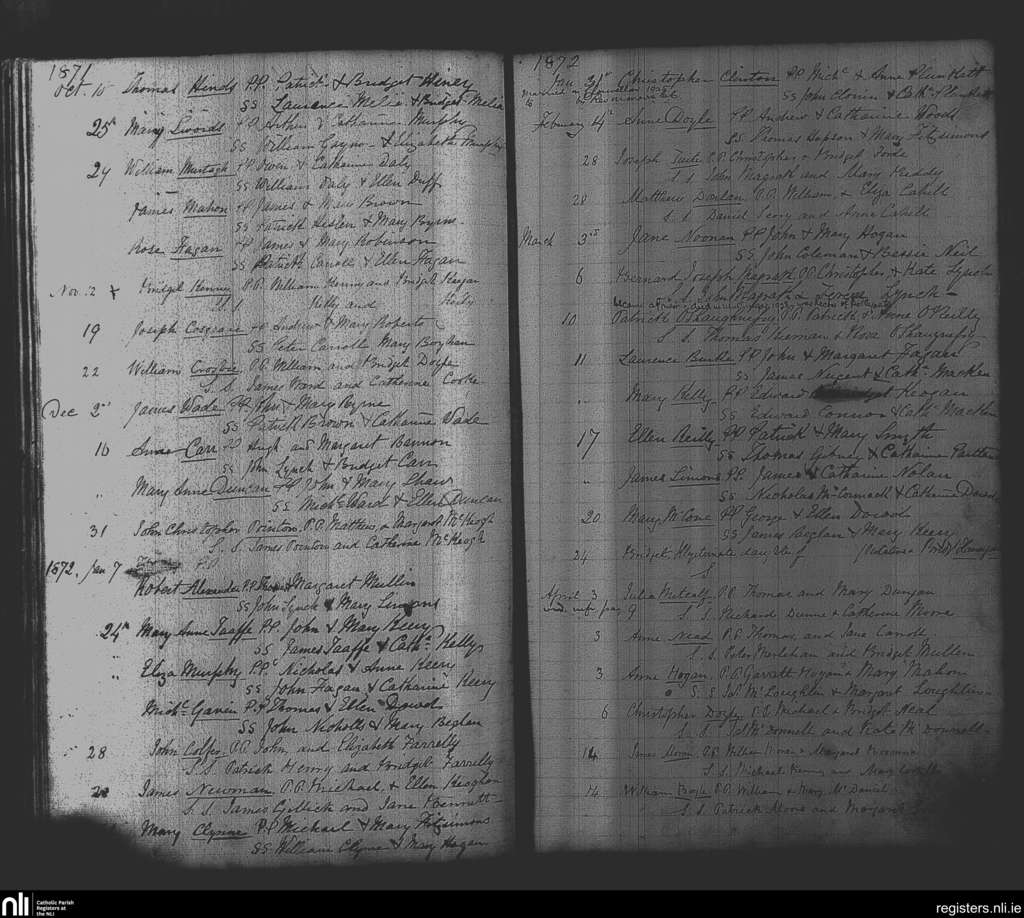 1871
Oct. 10 Thomas Hinds P.P. Patrick & Bridget Heney
SS Laurence Melia & Bridget Melia
25 Mary Swords P.P. Arthur & Catharine Murphy
SS William Gaynor & Elizabeth Murphy
29 William Murtagh P.P. Owen & Catharine Daly
SS William Daly & Ellen Duff
James Mahon P.P. James & Mary Brown
SS Patrick & Mary Byrne
Rose Fagan P.P. James & Mary Robinson
SS Patrick Carroll & Ellen Fagan
Nov. 12 Bridget Kenny P.P. William Kenny and Bridget Keegan
S.S. Kitty and
19 Joseph Cosgrave P.P. Andrew & Mary Roberts
SS Peter Carroll Mary Boylan
22 William Crosbie P.P. William and Bridget Doyle
S.S. James Ward and Catherine Cooke
Dec 3rd James Wade P.P. John & Mary Byrne
SS Patrick Brown & Catharine Wade
10 Anne Carr P.P. Hugh and Margaret Bannon
SS John Lynch & Bridget Carr
" Mary Anne Duncan P.P. John & Mary Shaw
SS Michl Ward & Ellen Duncan
31 John Christopher Pointon P.P. Mathew & Margaret McKeogh
S.S. James Pointon and Catherine McKeogh
1872. Jan 7
Robert Alexander P.P. & Margaret Mullin
SS John Lynch & Mary Simons
24th Mary Anne Taaffe P.P. John & Mary Keery
SS James Taaffe & Cath. Kelly
" Eliza Murphy P.P. Nicholas & Anne Keery
SS John Fagan & Catharine Keery
Michl Gavin P.P. Thomas & Ellen Dowd
SS John Nicholls & Mary Beglan
28 John Colfer P.P. John and Elizabeth Farrelly
S.S. Patrick Henry and Bridget Farrelly
28 James Newman P.P. Michael & Ellen Keoghan
S.S. James Gillick and Jane Bennett
Mary Clynne P.P. Michael & Mary Fitzsimons
SS William Clyne & Mary Hagan
1872
Jan 31st Christopher Clinton P.P. Michl & Anne Plunkett
SS John Clonin & Cath. Plunkett
February 4th Anne Doyle P.P. Andrew & Catharine Woods
SS Thomas Hopson & Mary Fitzsimons
28 Joseph Tuite P.P. Christopher & Bridget Forde
S.S. John Magrath and Mary Reddy
28 Matthew Donlan P.P. William & Eliza Cahill
S.S. Daniel Terry and Anne Cahill
March 3rd Jane Noonan P.P. John & Mary Hogan
SS John Coleman & Bessie Neil
6 Bernard Joseph Magrath P.P. Christopher & Kate Lynch
S.S. John Magrath & Teresa Lynch
10 Patrick O'Shaughnessy P.P. Patrick & Anne O'Reilly
S.S. Thomas Thernan & Rose O'Shaughnessy
11 Laurence Burke P.P. John & Margaret Fagan
SS James Nugent & Cath. Macken
Mary Kelly P.P. Edward Keogan
SS Edward Connor & Cath. Macken
17 Ellen Reilly P.P. Patrick & Mary Smyth
SS Thomas Gibney & Catharine Partland
" James Simons P.P. James & Catharine Nolan
SS Nicholas McCormack & Catherine Dowd
20 Mary McCone P.P. George & Ellen Dowd
SS James Beglan & Mary Keery
24 Bridget
S
April 3 Julia Metcalf P.P. Thomas and Mary Dungan
9 S.S. Richard Dunne & Catherine Moore
3 Anne Nead P.P. Thomas and Jane Carroll
S.S. Peter and Bridget Mullen
3 Anne Hogan P.P. Garrett Hogan & Mary Mahon
S.S. Jas McLoughlin & Margaret Loughlin
6 Christopher Doyle P.P. Michael & Bridget Neal
S.S. McDonnell and Kate McDonnell
14 James Moran P.P. William Moran & Margaret
S.S. Michael Kenny and Mary
14 William Boyle P.P. William & Mary McDaniel
S.S. Patrick Moore and Margaret
nli
Catholic Parish
Registers at
the NLI
registers.nli.ie